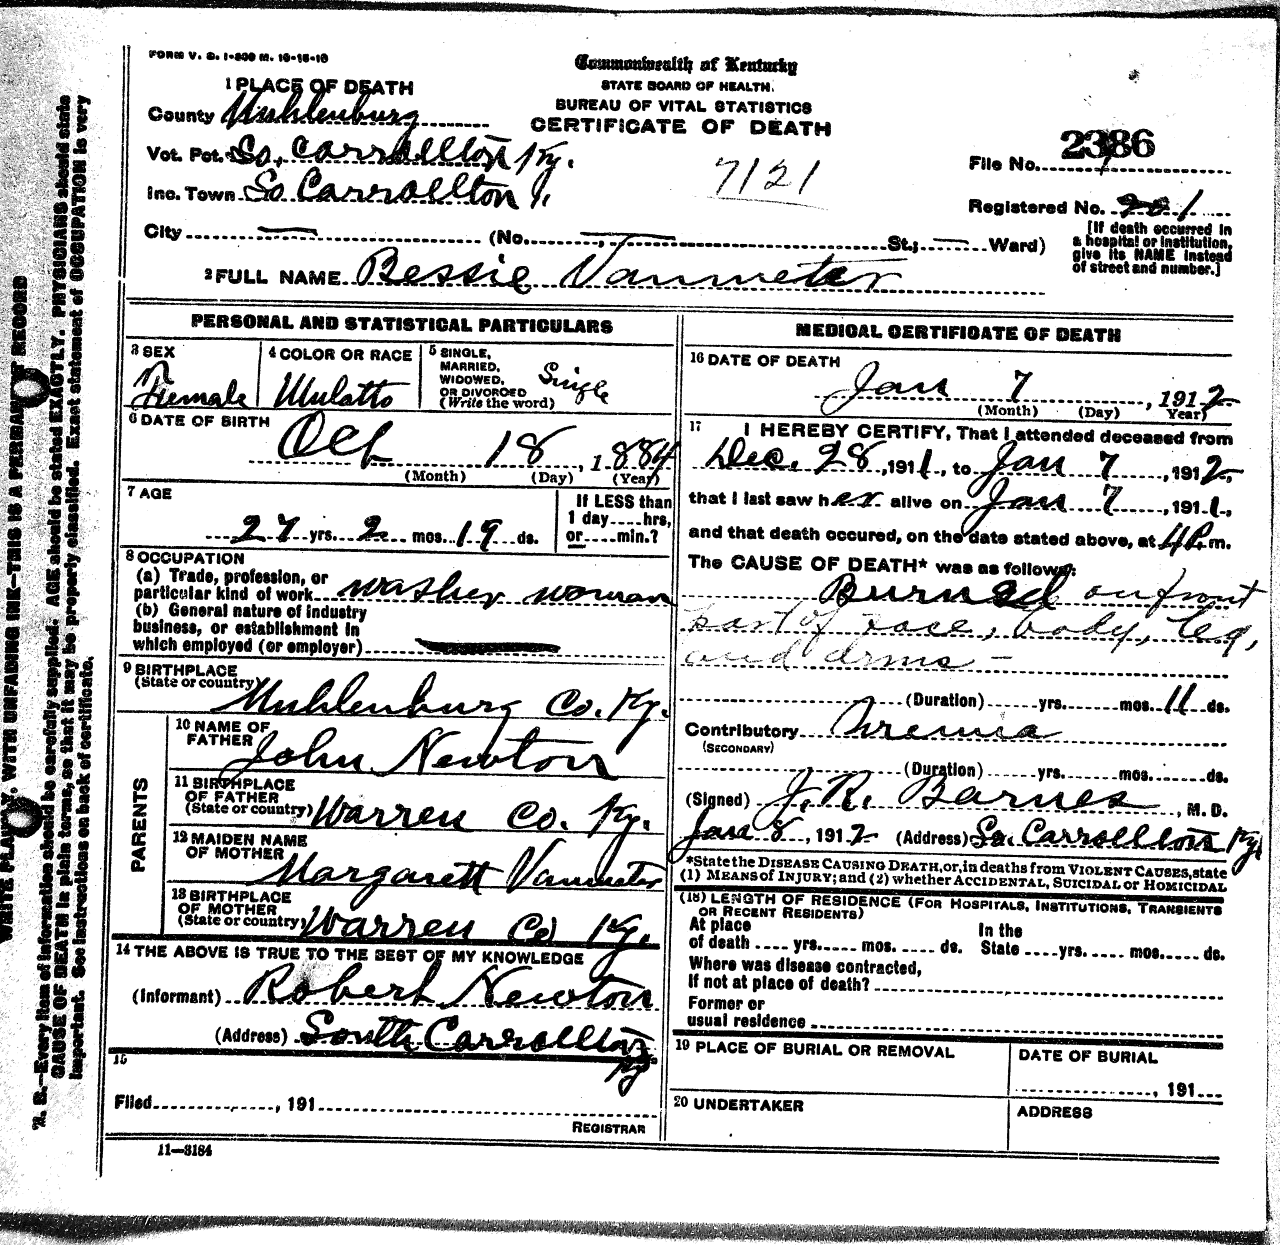 FORM V. S. 1-300 M. 10-15-10
Commonwealth of Kentucky
STATE BOARD OF HEALTH.
BUREAU OF VITAL STATISTICS
CERTIFICATE OF DEATH
1 PLACE OF DEATH
County Muhlenburg
Vot. Pct. So. Carrollton Ky.
Inc. Town So Carrollton
7121
File No. 2386
Registered No. 201
City — (No. —, St.; — Ward)
[If death occurred in a hospital or institution, give its NAME instead of street and number.]
2 FULL NAME Bessie Vanmeter
PERSONAL AND STATISTICAL PARTICULARS
3 SEX
Female
4 COLOR OR RACE
Mulatto
5 SINGLE, MARRIED, WIDOWED, OR DIVORCED (Write the word)
Single
6 DATE OF BIRTH
Oct 18, 1884
(Month) (Day) (Year)
7 AGE
27 yrs. 2 mos. 19 ds.
If LESS than 1 day....hrs, or....min.?
8 OCCUPATION
(a) Trade, profession, or
particular kind of work washer woman
(b) General nature of industry
business, or establishment in
which employed (or employer)
9 BIRTHPLACE
(State or country) Muhlenburg Co. Ky.
PARENTS
10 NAME OF FATHER John Newton
11 BIRTHPLACE OF FATHER
(State or country) Warren Co. Ky.
12 MAIDEN NAME OF MOTHER Margarett Vanmeter
13 BIRTHPLACE OF MOTHER
(State or country) Warren Co Ky.
14 THE ABOVE IS TRUE TO THE BEST OF MY KNOWLEDGE
(Informant) Robert Newton
(Address) South Carrollton
Ky
15
Filed, 191
REGISTRAR
11—3184
MEDICAL CERTIFICATE OF DEATH
16 DATE OF DEATH
Jan 7, 1912
(Month) (Day) (Year)
17 I HEREBY CERTIFY, That I attended deceased from
Dec. 28, 1911, to Jan 7, 1912,
that I last saw her alive on Jan 7, 1911,
and that death occured, on the date stated above, at 4P.m.
The CAUSE OF DEATH* was as follows:
Burned on front
part of face, body, leg,
and arms —
(Duration) yrs. mos. 11 ds.
Contributory Uremia
(SECONDARY)
(Duration) yrs. mos. ds.
(Signed) J. R. Barnes, M. D.
Jan 8, 1912 (Address) So. Carrollton Ky
*State the DISEASE CAUSING DEATH, or, in deaths from VIOLENT CAUSES, state
(1) MEANS of INJURY; and (2) whether ACCIDENTAL, SUICIDAL or HOMICIDAL
(18) LENGTH OF RESIDENCE (FOR HOSPITALS, INSTITUTIONS, TRANSIENTS
OR RECENT RESIDENTS)
At place of death .... yrs. .... mos. .... ds.
In the State .... yrs. .... mos. .... ds.
Where was disease contracted,
If not at place of death?
Former or
usual residence
19 PLACE OF BURIAL OR REMOVAL
DATE OF BURIAL
, 191
20 UNDERTAKER
ADDRESS
WRITE PLAINLY, WITH UNFADING INK—THIS IS A PERMANENT RECORD
N. B.—Every item of information should be carefully supplied. AGE should be stated EXACTLY. PHYSICIANS should state
CAUSE OF DEATH in plain terms, so that it may be properly classified. Exact statement of OCCUPATION is very
important. See instructions on back of certificate.